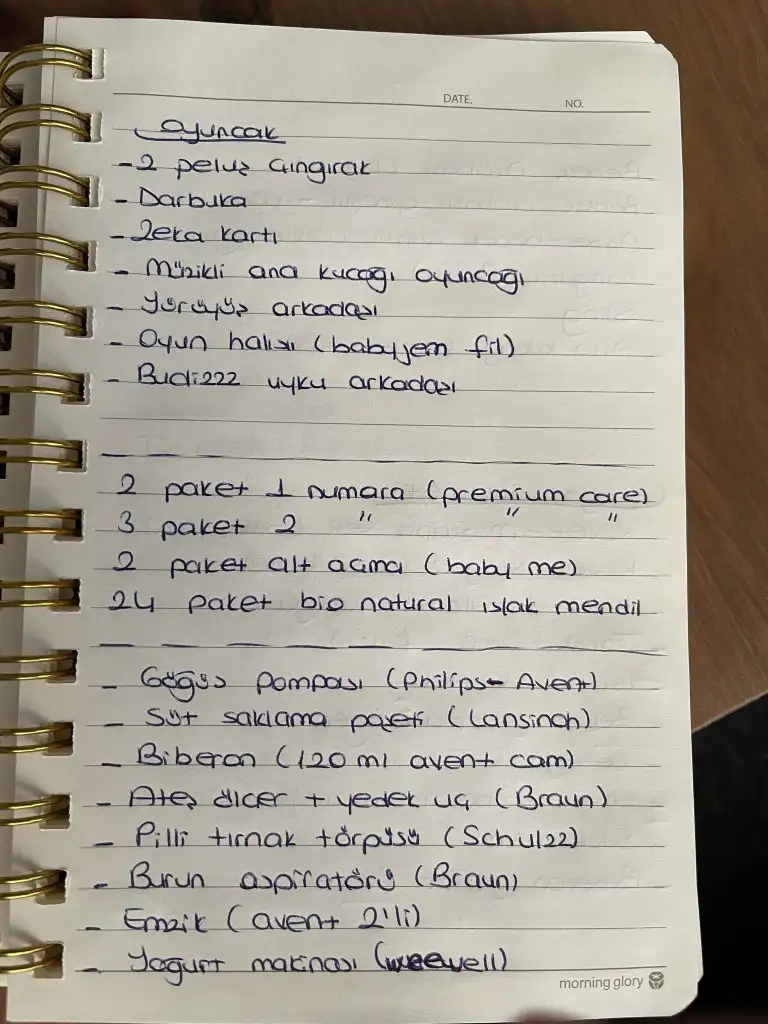 DATE. NO.
Oyuncak
-2 peluş çıngırak
- Darbuka
- Zeka kartı
- Müzikli ana kucağı oyuncağı
- Yürüyüş arkadaşı
- Oyun halısı (babyjem fil)
- Budizzz uyku arkadaşı
2 paket 1 numara (premium care)
3 paket 2 " " "
2 paket alt açma (baby me)
24 paket bio natural ıslak mendil
- Göğüs pompası (Philips - Avent)
- Süt saklama poşeti (Lansinoh)
- Biberon (120 ml avent cam)
- Ateş ölçer + yedek uç (Braun)
- Pilli tırnak törpüsü (Schulzz)
- Burun aspiratörü (Braun)
- Emzik (avent 2'li)
- Yogurt makinası (weewell)
morning glory